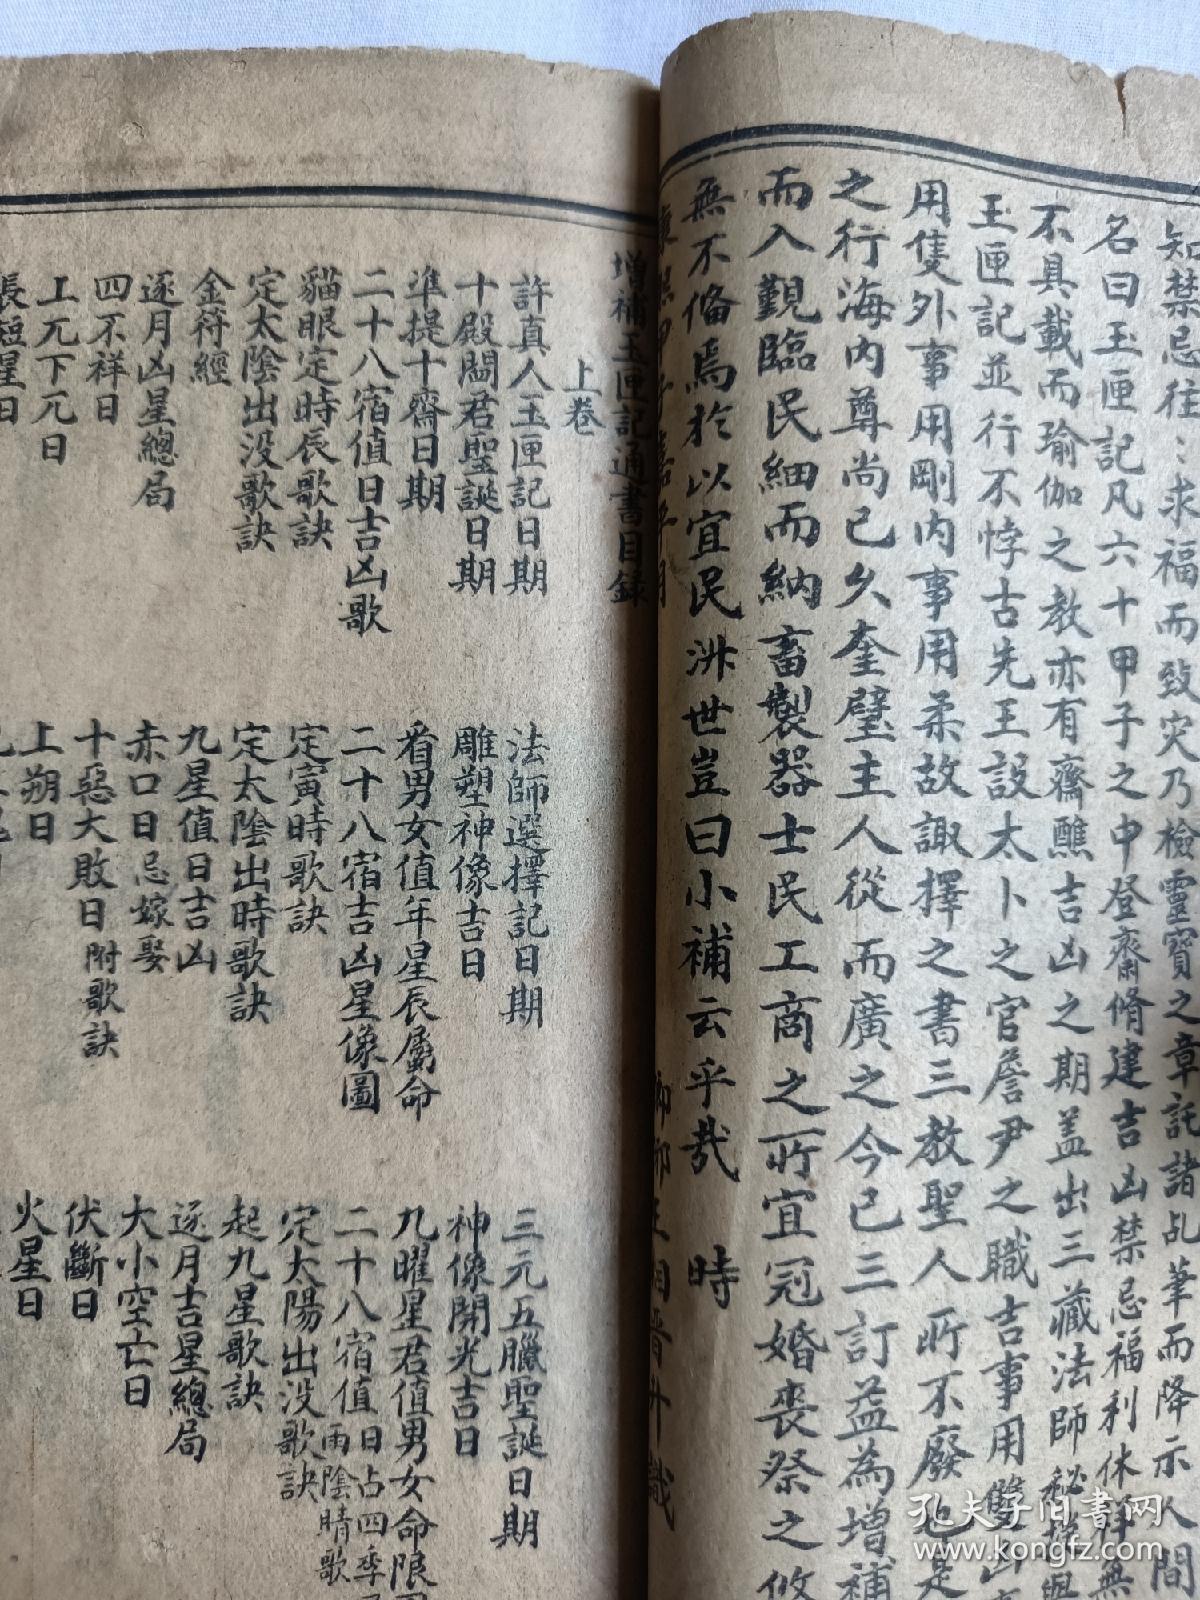 知禁忌往〻求福而致灾乃檢靈寶之章託諸乩筆而降示人間
名曰玉匣記凡六十甲子之中登齋脩建吉凶禁忌福利休祥無
不具載而瑜伽之教亦有齋醮吉凶之期盖出三藏法師秘
玉匣記並行不悖古先王設太卜之官詹尹之職吉事用雙
用隻外事用剛内事用柔故諏擇之書三教聖人所不廢也是
之行海内尊尚已久奎璧主人從而廣之今已三訂益為增補
而入覲臨民細而納畜製器士民工商之所宜冠婚喪祭之攸
無不俻焉於以宜民洲世豈曰小補云乎哉 時
增補玉匣記通書目錄
上卷
許真人玉匣記日期 法師選擇記日期 三元五臘聖誕日期
十殿閻君聖誕日期 雕塑神像吉日 神像開光吉日
准提十齋日期 看男女值年星辰屬命 九曜星君值男女命限
二十八宿值日吉凶歌 二十八宿吉凶星像圖 二十八宿值日占四季雨陰晴歌
貓眼定時辰歌訣 定寅時歌訣 定太陽出没歌訣
定太陰出没歌訣 定太陰出時歌訣 起九星歌訣
金符經 九星值日吉凶 逐月吉星總局
逐月凶星總局 赤口日忌嫁娶 大小空亡日
四不祥日 十惡大敗日附歌訣 伏斷日
上兀下兀日 上朔日 火星日
長短星日